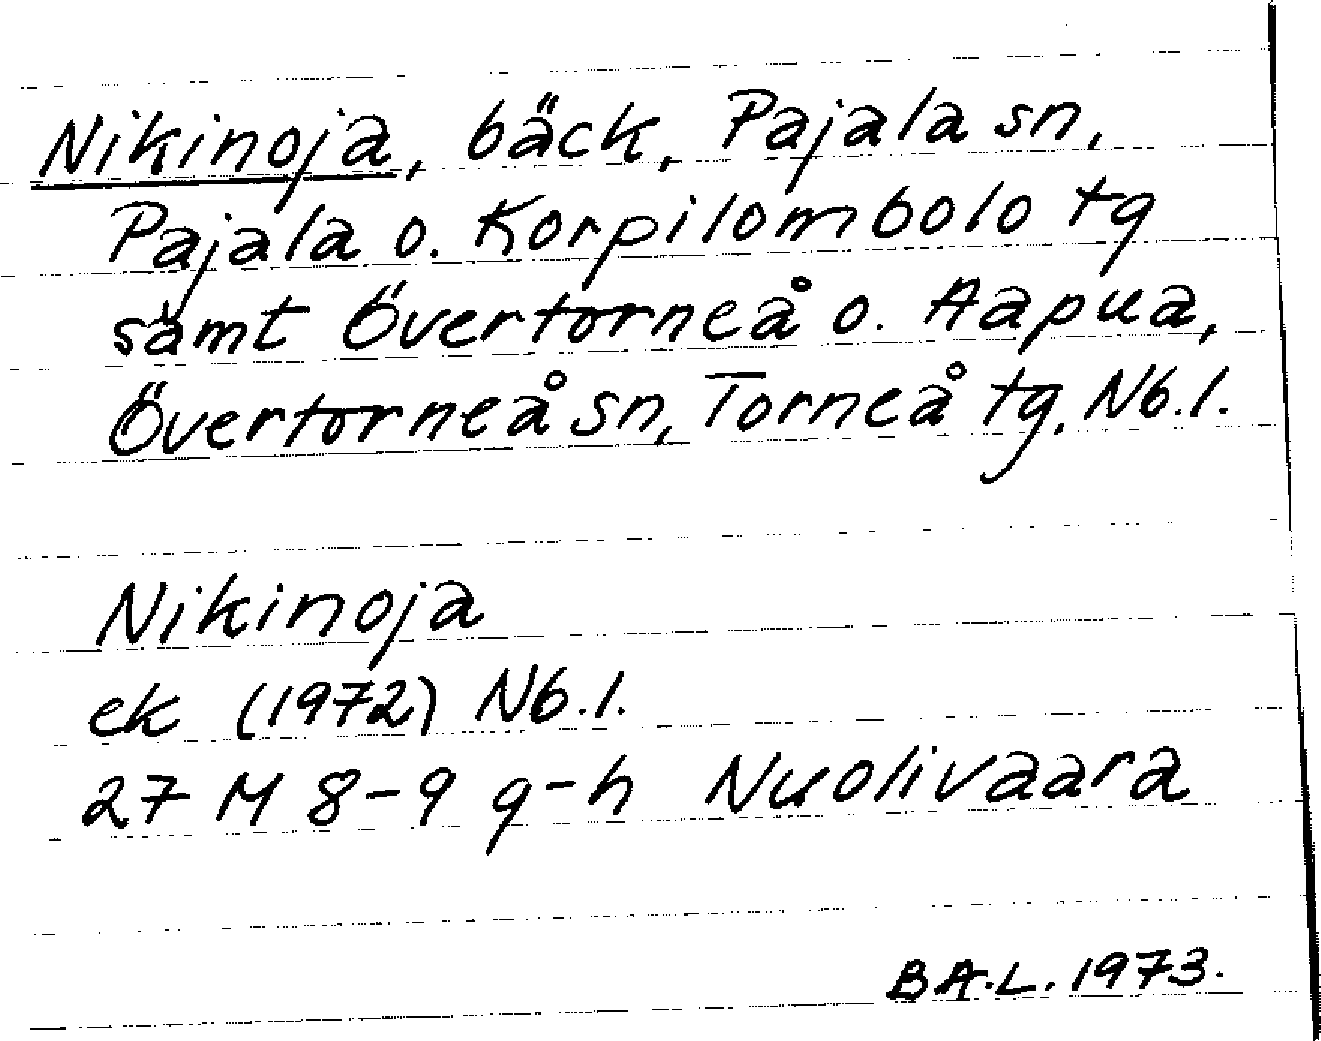 Nikinoja, bäck, Pajala sn,
Pajala o. Korpilombolo tg
samt Övertorneå o. Aapua,
Övertorneå sn, Torneå tg. Nb.l.
Nikinoja
ek (1972) Nb.l.
27 M 8-9 g-h Nuolivaara
B A.L. 1973.